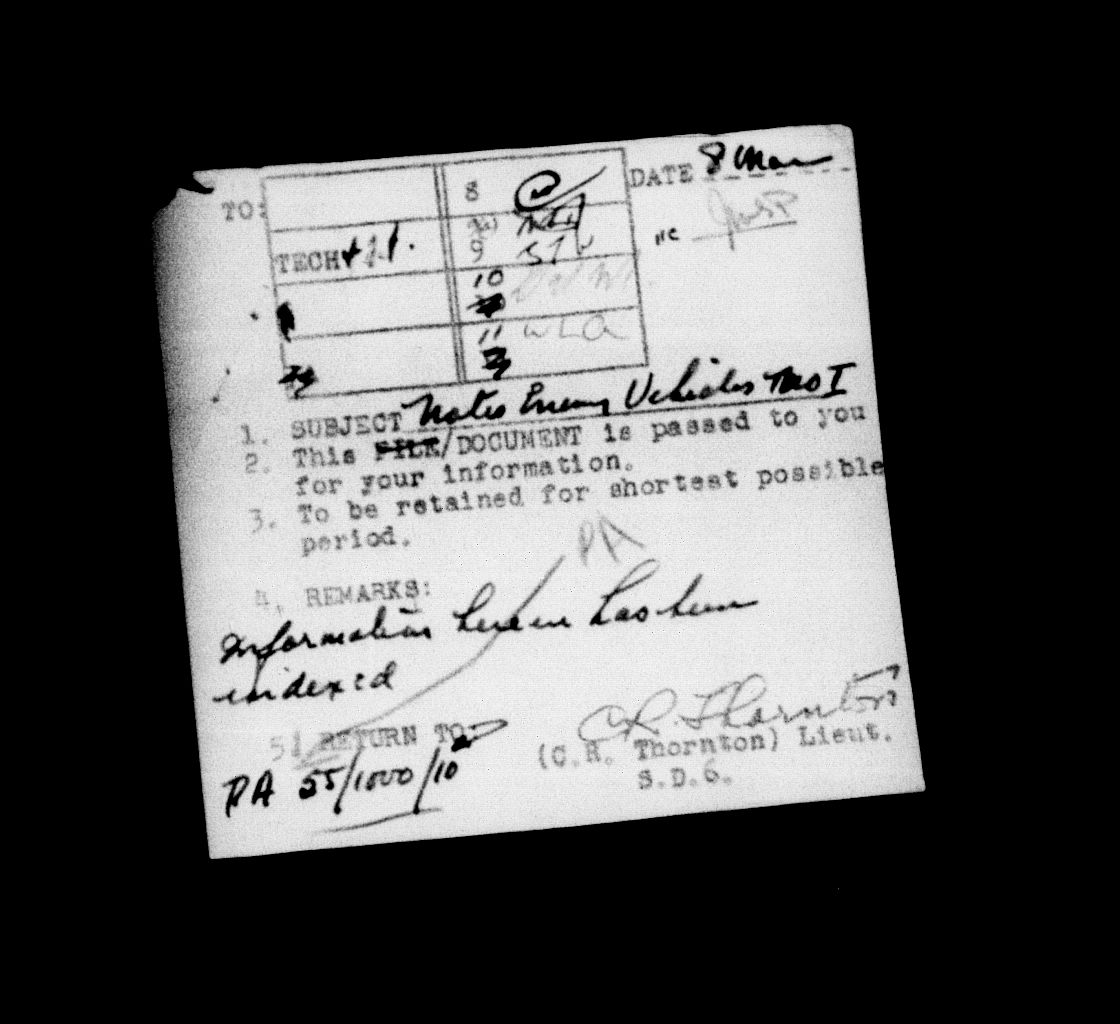 DATE 8 Mar
TO:
8
TECH
9
10
11 WLA
1. SUBJECT Notes Enemy Vehicles No I
2. This FILE/DOCUMENT is passed to you
for your information.
3. To be retained for shortest possible
period.
PA
4. REMARKS:
Information herein has been
indexed
C R Thornton
5. RETURN TO:
(C.R. Thornton) Lieut.
PA 55/1000/10
S.D.6.